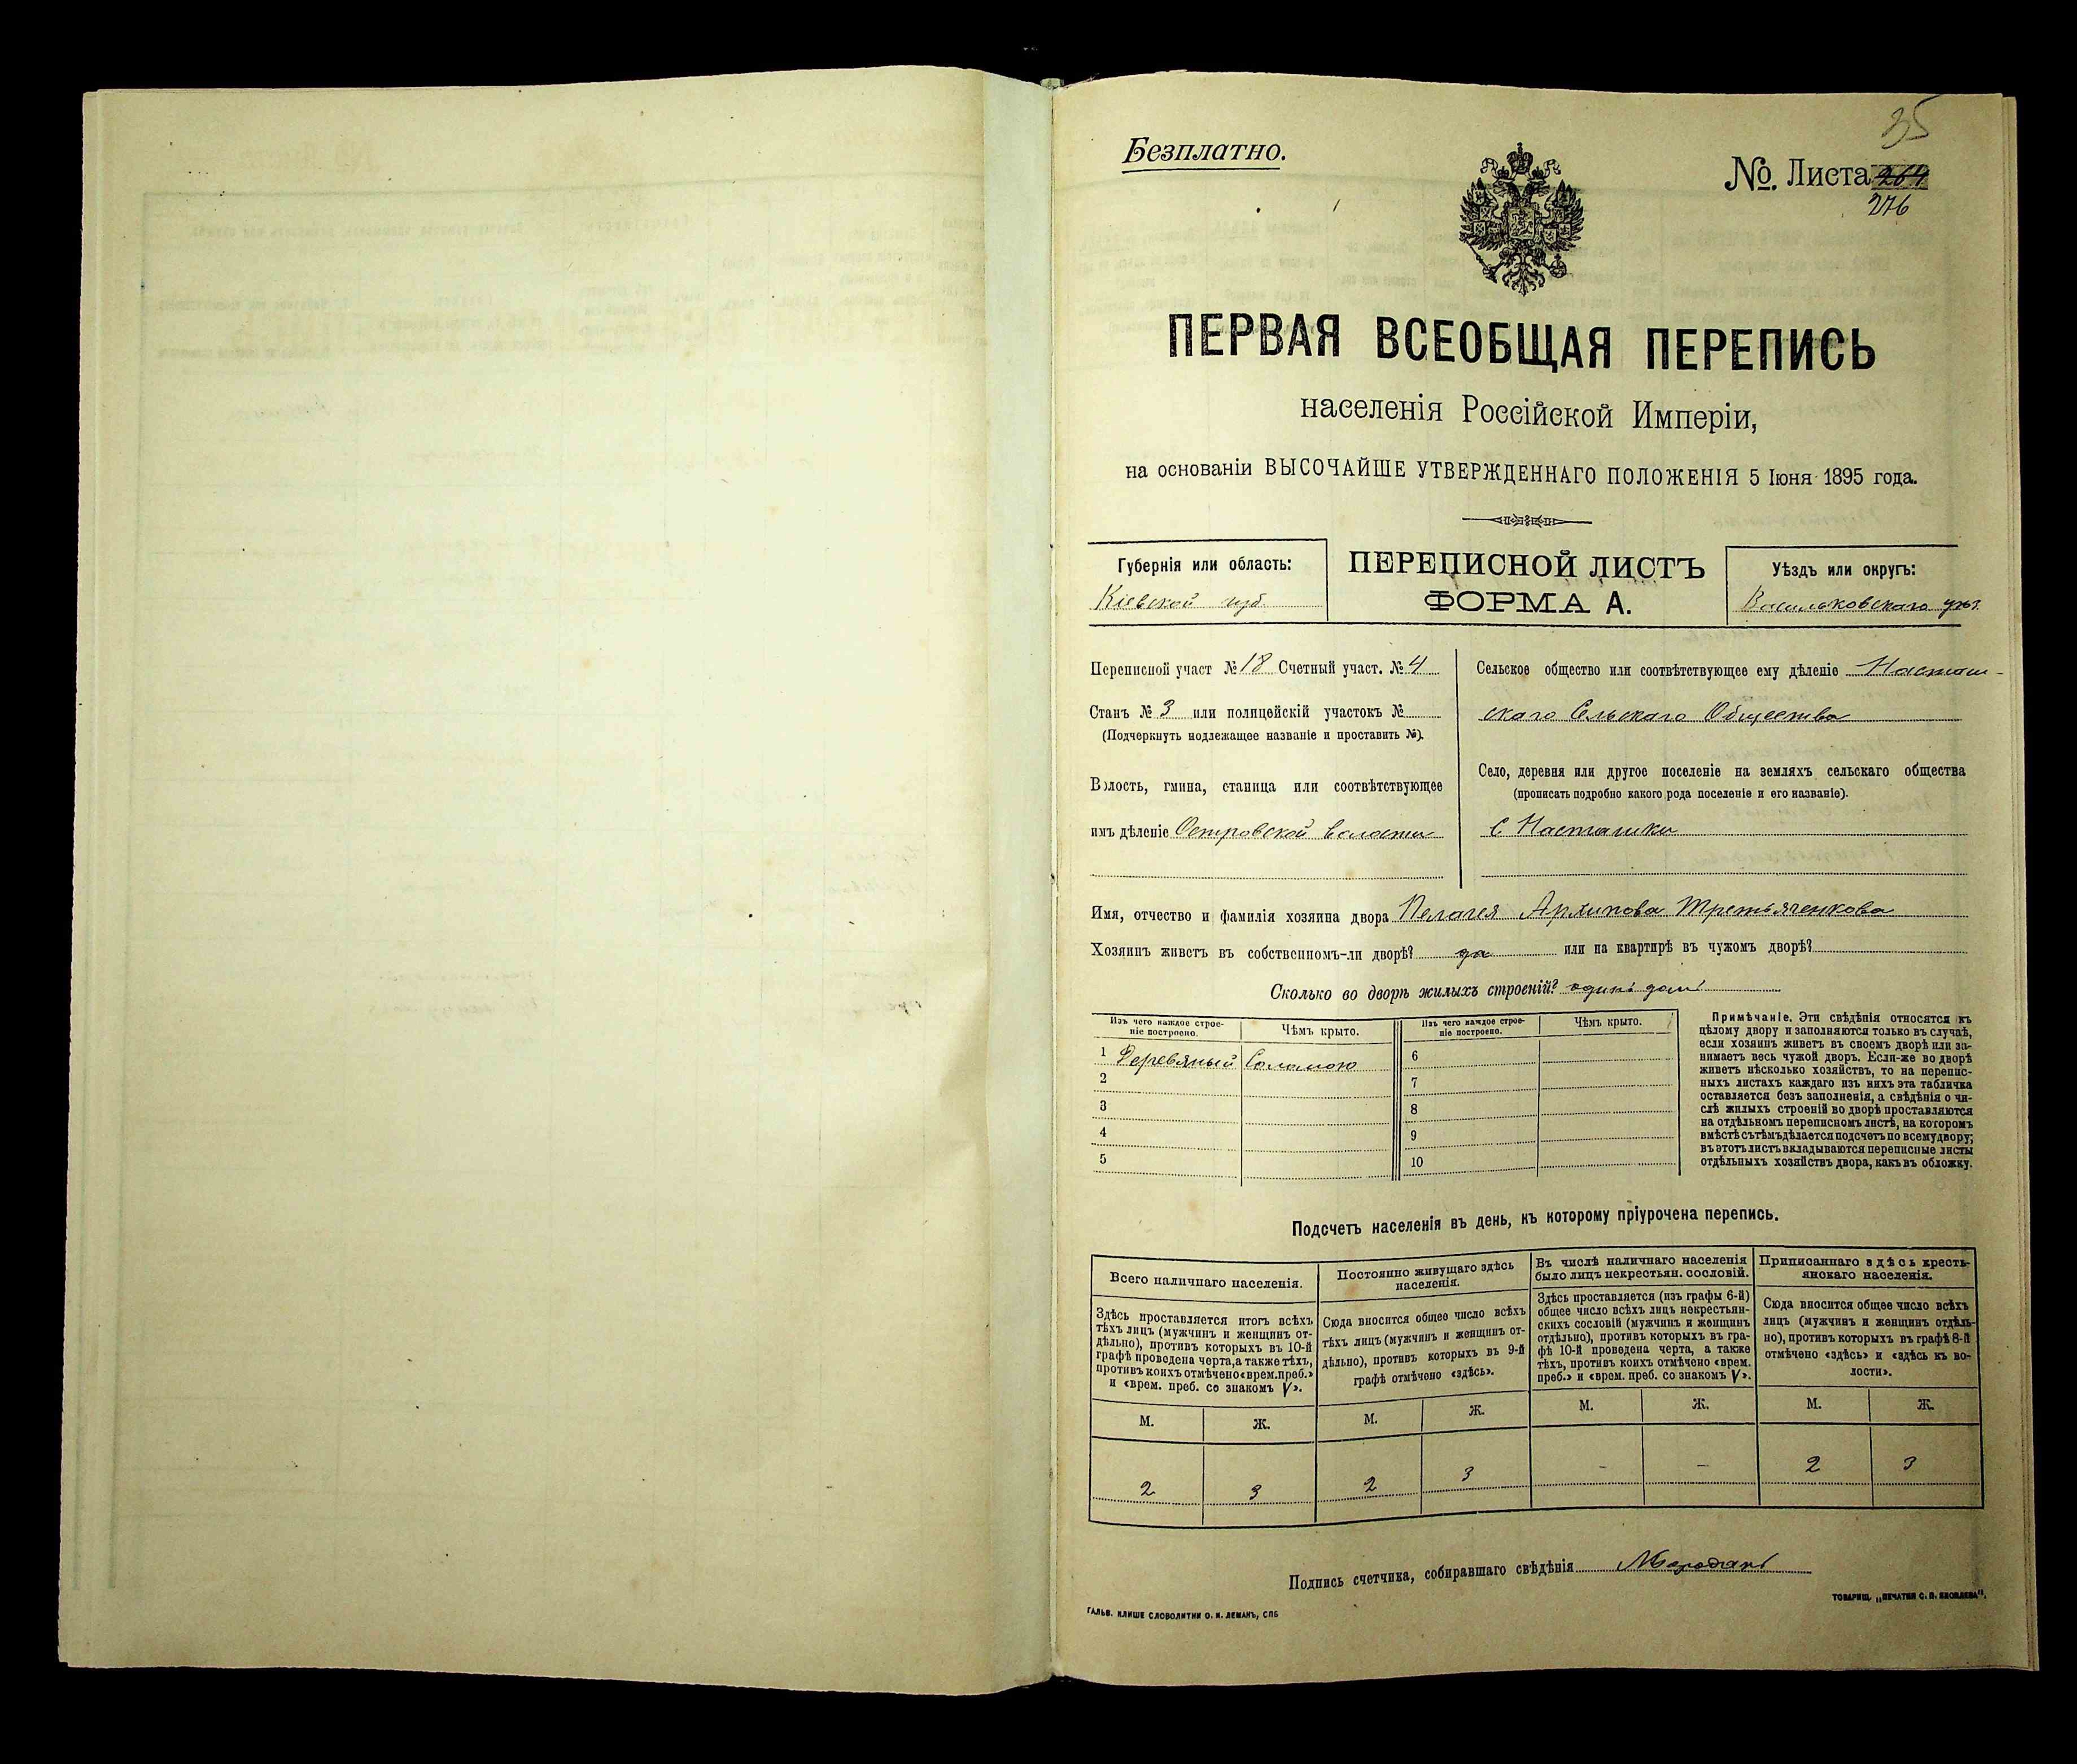 35
Безплатно.
№. Листа 264
276
ПЕРВАЯ ВСЕОБЩАЯ ПЕРЕПИСЬ
населенія Россійской Имперіи,
на основаніи ВЫСОЧАЙШЕ УТВЕРЖДЕННАГО ПОЛОЖЕНІЯ 5 Іюня 1895 года.
Губернія или область:
Кіевской губ
ПЕРЕПИСНОЙ ЛИСТЪ
ФОРМА А.
Уѣздъ или округъ:
Васильковскаго уѣз.
Переписной участ №18 Счетный участ. №4
Станъ № 3 или полицейскій участокъ №
(Подчеркнуть подлежащее названіе и проставить №).
Волость, гмина, станица или соотвѣтствующее
имъ дѣленіе Островской волости
Сельское общество или соотвѣтствующее ему дѣленіе Насташ-
скаго Сельскаго Общества
Село, деревня или другое поселеніе на земляхъ сельскаго общества
(прописать подробно какого рода поселеніе и его названіе).
С Насташки
Имя, отчество и фамилія хозяина двора Пелагея Архипова Третьяченкова
Хозяинъ живетъ въ собственномъ-ли дворѣ? да или на квартирѣ въ чужомъ дворѣ?
Сколько во дворѣ жилыхъ строеній? одинъ домъ
Изъ чего каждое строе-
ніе построено.
Чѣмъ крыто.
Изъ чего каждое строе-
ніе построено.
Чѣмъ крыто.
1 Деревяный Соломою
2
3
4
5
6
7
8
9
10
Примѣчаніе. Эти свѣдѣнія относятся къ
цѣлому двору и заполняются только въ случаѣ,
если хозяинъ живетъ въ своемъ дворѣ или за-
нимаетъ весь чужой дворъ. Если-же во дворѣ
живетъ нѣсколько хозяйствъ, то на перепис-
ныхъ листахъ каждаго изъ нихъ эта табличка
оставляется безъ заполненія, а свѣдѣнія о чи-
слѣ жилыхъ строеній во дворѣ проставляются
на отдѣльномъ переписномъ листѣ, на которомъ
вмѣстѣ съ тѣмъ дѣлается подсчетъ по всему двору;
въ этотъ листъ вкладываются переписные листы
отдѣльныхъ хозяйствъ двора, какъ въ обложку.
Подсчетъ населенія въ день, къ которому пріурочена перепись.
Всего наличнаго населенія.
Здѣсь проставляется итогъ всѣхъ
тѣхъ лицъ (мужчинъ и женщинъ от-
дѣльно), противъ которыхъ въ 10-й
графѣ проведена черта, а также тѣхъ,
противъ коихъ отмѣчено «врем. преб.»
и «врем. преб. со знакомъ V».
Постоянно живущаго здѣсь
населенія.
Сюда вносится общее число всѣхъ
тѣхъ лицъ (мужчинъ и женщинъ от-
дѣльно), противъ которыхъ въ 9-й
графѣ отмѣчено «здѣсь».
Въ числѣ наличнаго населенія
было лицъ некрестьян. сословій.
Здѣсь проставляется (изъ графы 6-й)
общее число всѣхъ лицъ некрестьян-
скихъ сословій (мужчинъ и женщинъ
отдѣльно), противъ которыхъ въ гра-
фѣ 10-й проведена черта, а также
тѣхъ, противъ коихъ отмѣчено «врем.
преб.» и «врем. преб. со знакомъ V».
Приписаннаго здѣсь кресть-
янскаго населенія.
Сюда вносится общее число всѣхъ
лицъ (мужчинъ и женщинъ отдѣль-
но), противъ которыхъ въ графѣ 8-й
отмѣчено «здѣсь» и «здѣсь къ во-
лости».
М. Ж. М. Ж. М. Ж. М. Ж.
2 3 2 3 - - 2 3
Подпись счетчика, собиравшаго свѣдѣнія
ГАЛЬВ. КЛИШЕ СЛОВОЛИТНИ О. И. ЛЕМАНЪ, СПБ
ТОВАРИЩ. „ПЕЧАТНИ С. П. ЯКОВЛЕВА".